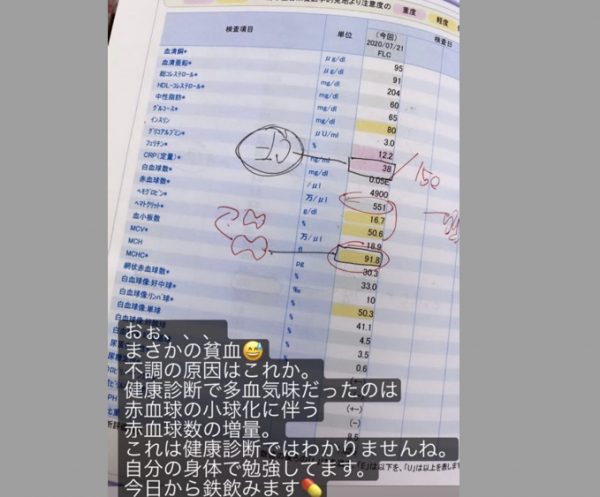 検査項目
単位
(今回)
2020/07/21
FLC
検査日
重度
軽度
血清銅* μg/dl 95
血清亜鉛* μg/dl 91
総コレステロール* mg/dl 204
HDL-コレステロール* mg/dl 60
中性脂肪* mg/dl 65
グルコース* mg/dl 80
インスリン μU/ml 3.0
グリコアルブミン* % 12.2
フェリチン* ng/ml 38
CRP(定量)* 0.05E
白血球数* /μl 4900
赤血球数* 万/μl 551
ヘモグロビン* g/dl 16.7
ヘマトクリット* % 50.6
血小板数 万/μl 16.9
MCV* 91.8
MCH pg 30.3
MCHC* % 33.0
網状赤血球数* ‰ 10
白血球像:好中球* % 50.3
白血球像:リンパ球* % 41.1
白血球像:単球 % 4.5
% 3.5
% 0.6
150
おお、、、、
まさかの貧血😅
不調の原因はこれか。
健康診断で多血気味だったのは
赤血球の小球化に伴う
赤血球数の増量。
これは健康診断ではわかりませんね。
自分の身体で勉強してます。
今日から鉄飲みます💊